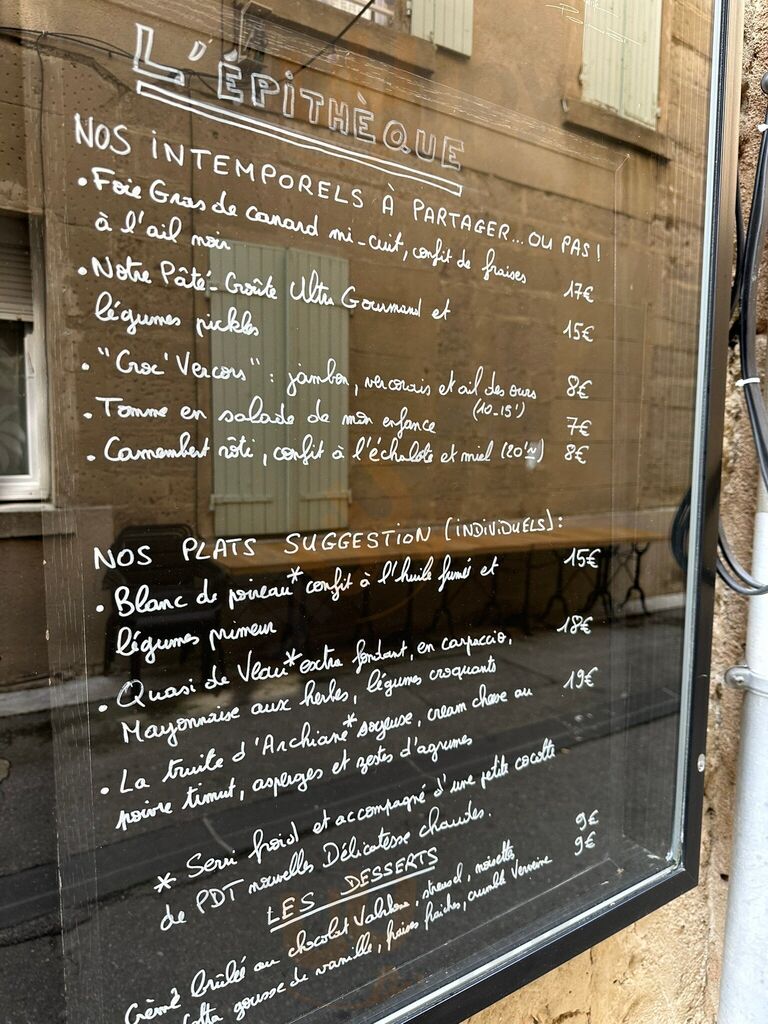 L'ÉPITHÈQUE
NOS INTEMPORELS À PARTAGER... OU PAS !
• Foie Gras de canard mi-cuit, confit de fraises
à l'ail noir 17€
• Notre Pâté-Croûte Ultra Gourmand et
légumes pickles 15€
• "Croc'Vercors" : jambon, vercorais et ail des ours 8€
(10-15')
• Tomme en salade de mon enfance 7€
• Camembert rôti, confit à l'échalote et miel (20'N) 8€
NOS PLATS SUGGESTION (INDIVIDUELS) :
• Blanc de poireau* confit à l'huile fumé et 15€
légumes primeur
• Quasi de Veau* extra fondant, en carpaccio, 18€
Mayonnaise aux herbes, légumes croquants
• La truite d'Archiane* soyeuse, cream cheese au 19€
poivre timut, asperges et zestes d'agrumes
* Servi froid et accompagné d'une petite cocotte
de PDT nouvelles Délicatesse chaudes.
LES DESSERTS
Crème brûlée au chocolat Valrhona, streusel, noisettes 9€
Cotta gousse de vanille, fraises fraîches, crumble Verveine 9€